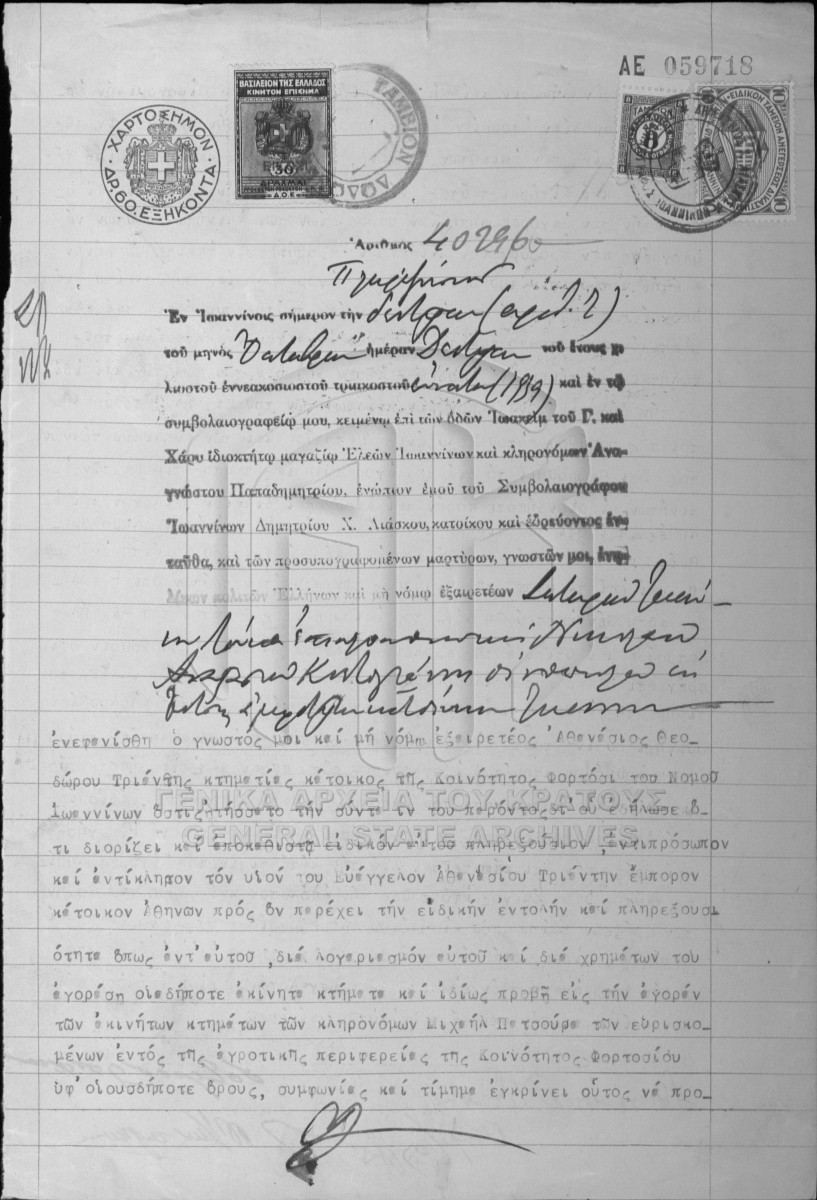 ΑΕ 059718
ΧΑΡΤΟΣΗΜΟΝ
ΔΡ. 60. ΕΞΗΚΟΝΤΑ
ΒΑΣΙΛΕΙΟΝ ΤΗΣ ΕΛΛΑΔΟΣ
ΚΙΝΗΤΟΝ ΕΠΙΣΗΜΑ
30
ΔΡΑΧΜΑΙ
ΤΑΜΕΙΟΝ
Ἀριθμὸς 40296
Πληρεξούσιον
Ἐν Ἰωαννίνοις σήμερον τὴν δευτέραν (ἀριθ. 2)
τοῦ μηνὸς Ὀκτωβρίου ἡμέραν Δευτέραν τοῦ ἔτους χι
λιοστοῦ ἐννεακοσιοστοῦ τριακοστοῦ ἐνάτου (1939) καὶ ἐν τῷ
συμβολαιογραφείῳ μου, κειμένῳ ἐπὶ τῶν ὁδῶν Ἰωακεὶμ τοῦ Γ. καὶ
Χάρυ ἰδιοκτήτῳ μαγαζίῳ Ἐλεῶν Ἰωαννίνων καὶ κληρονόμων Ἀνα-
γνώστου Παπαδημητρίου, ἐνώπιον ἐμοῦ τοῦ Συμβολαιογράφου
Ἰωαννίνων Δημητρίου Χ. Λιάσκου, κατοίκου καὶ ἑδρεύοντος ἐν-
ταῦθα, καὶ τῶν προσυπογραφομένων μαρτύρων, γνωστῶν μοι, ἐνη-
λίκων πολιτῶν Ἑλλήνων καὶ μὴ νόμῳ ἐξαιρετέων
ἐνεφανίσθη ὁ γνωστός μοι καί μή νόμῳ ἐξαιρετέος Ἀθανάσιος Θεο-
δώρου Τριάντης κτηματίας κάτοικος τῆς Κοινότητος Φορτόσι του Νομοῦ
Ἰωαννίνων ὅστις ἠτήσατο τήν σύνταξιν του παρόντος δι'οὗ ἐδήλωσε ὅ-
τι διορίζει καί ἀποκαθιστᾷ εἰδικόν αὐτοῦ πληρεξούσιον, ἀντιπρόσωπον
καί ἀντίκλητον τόν υἱόν του Εὐάγγελον Ἀθανασίου Τριάντην ἔμπορον
κάτοικον Ἀθηνῶν πρός ὅν παρέχει τήν εἰδικήν ἐντολήν καί πληρεξουσι
ότητα ὅπως ἀντ'αὐτοῦ, διά λογαριασμόν αὐτοῦ καί διά χρημάτων του
ἀγοράσῃ οἱαδήποτε ἀκίνητα κτήματα καί ἰδίως προβῇ εἰς τήν ἀγοράν
τῶν ἀκινήτων κτημάτων τῶν κληρονόμων Μιχαήλ Πατσούρα τῶν εὑρισκο-
μένων ἐντός τῆς ἀγροτικῆς περιφερείας τῆς Κοινότητος Φορτοσίου
ὑφ'οἱουσδήποτε ὅρους, συμφωνίας καί τίμημα ἐγκρίνει οὗτος νά προ-
ΓΕΝΙΚΑ ΑΡΧΕΙΑ ΤΟΥ ΚΡΑΤΟΥΣ
GENERAL STATE ARCHIVES